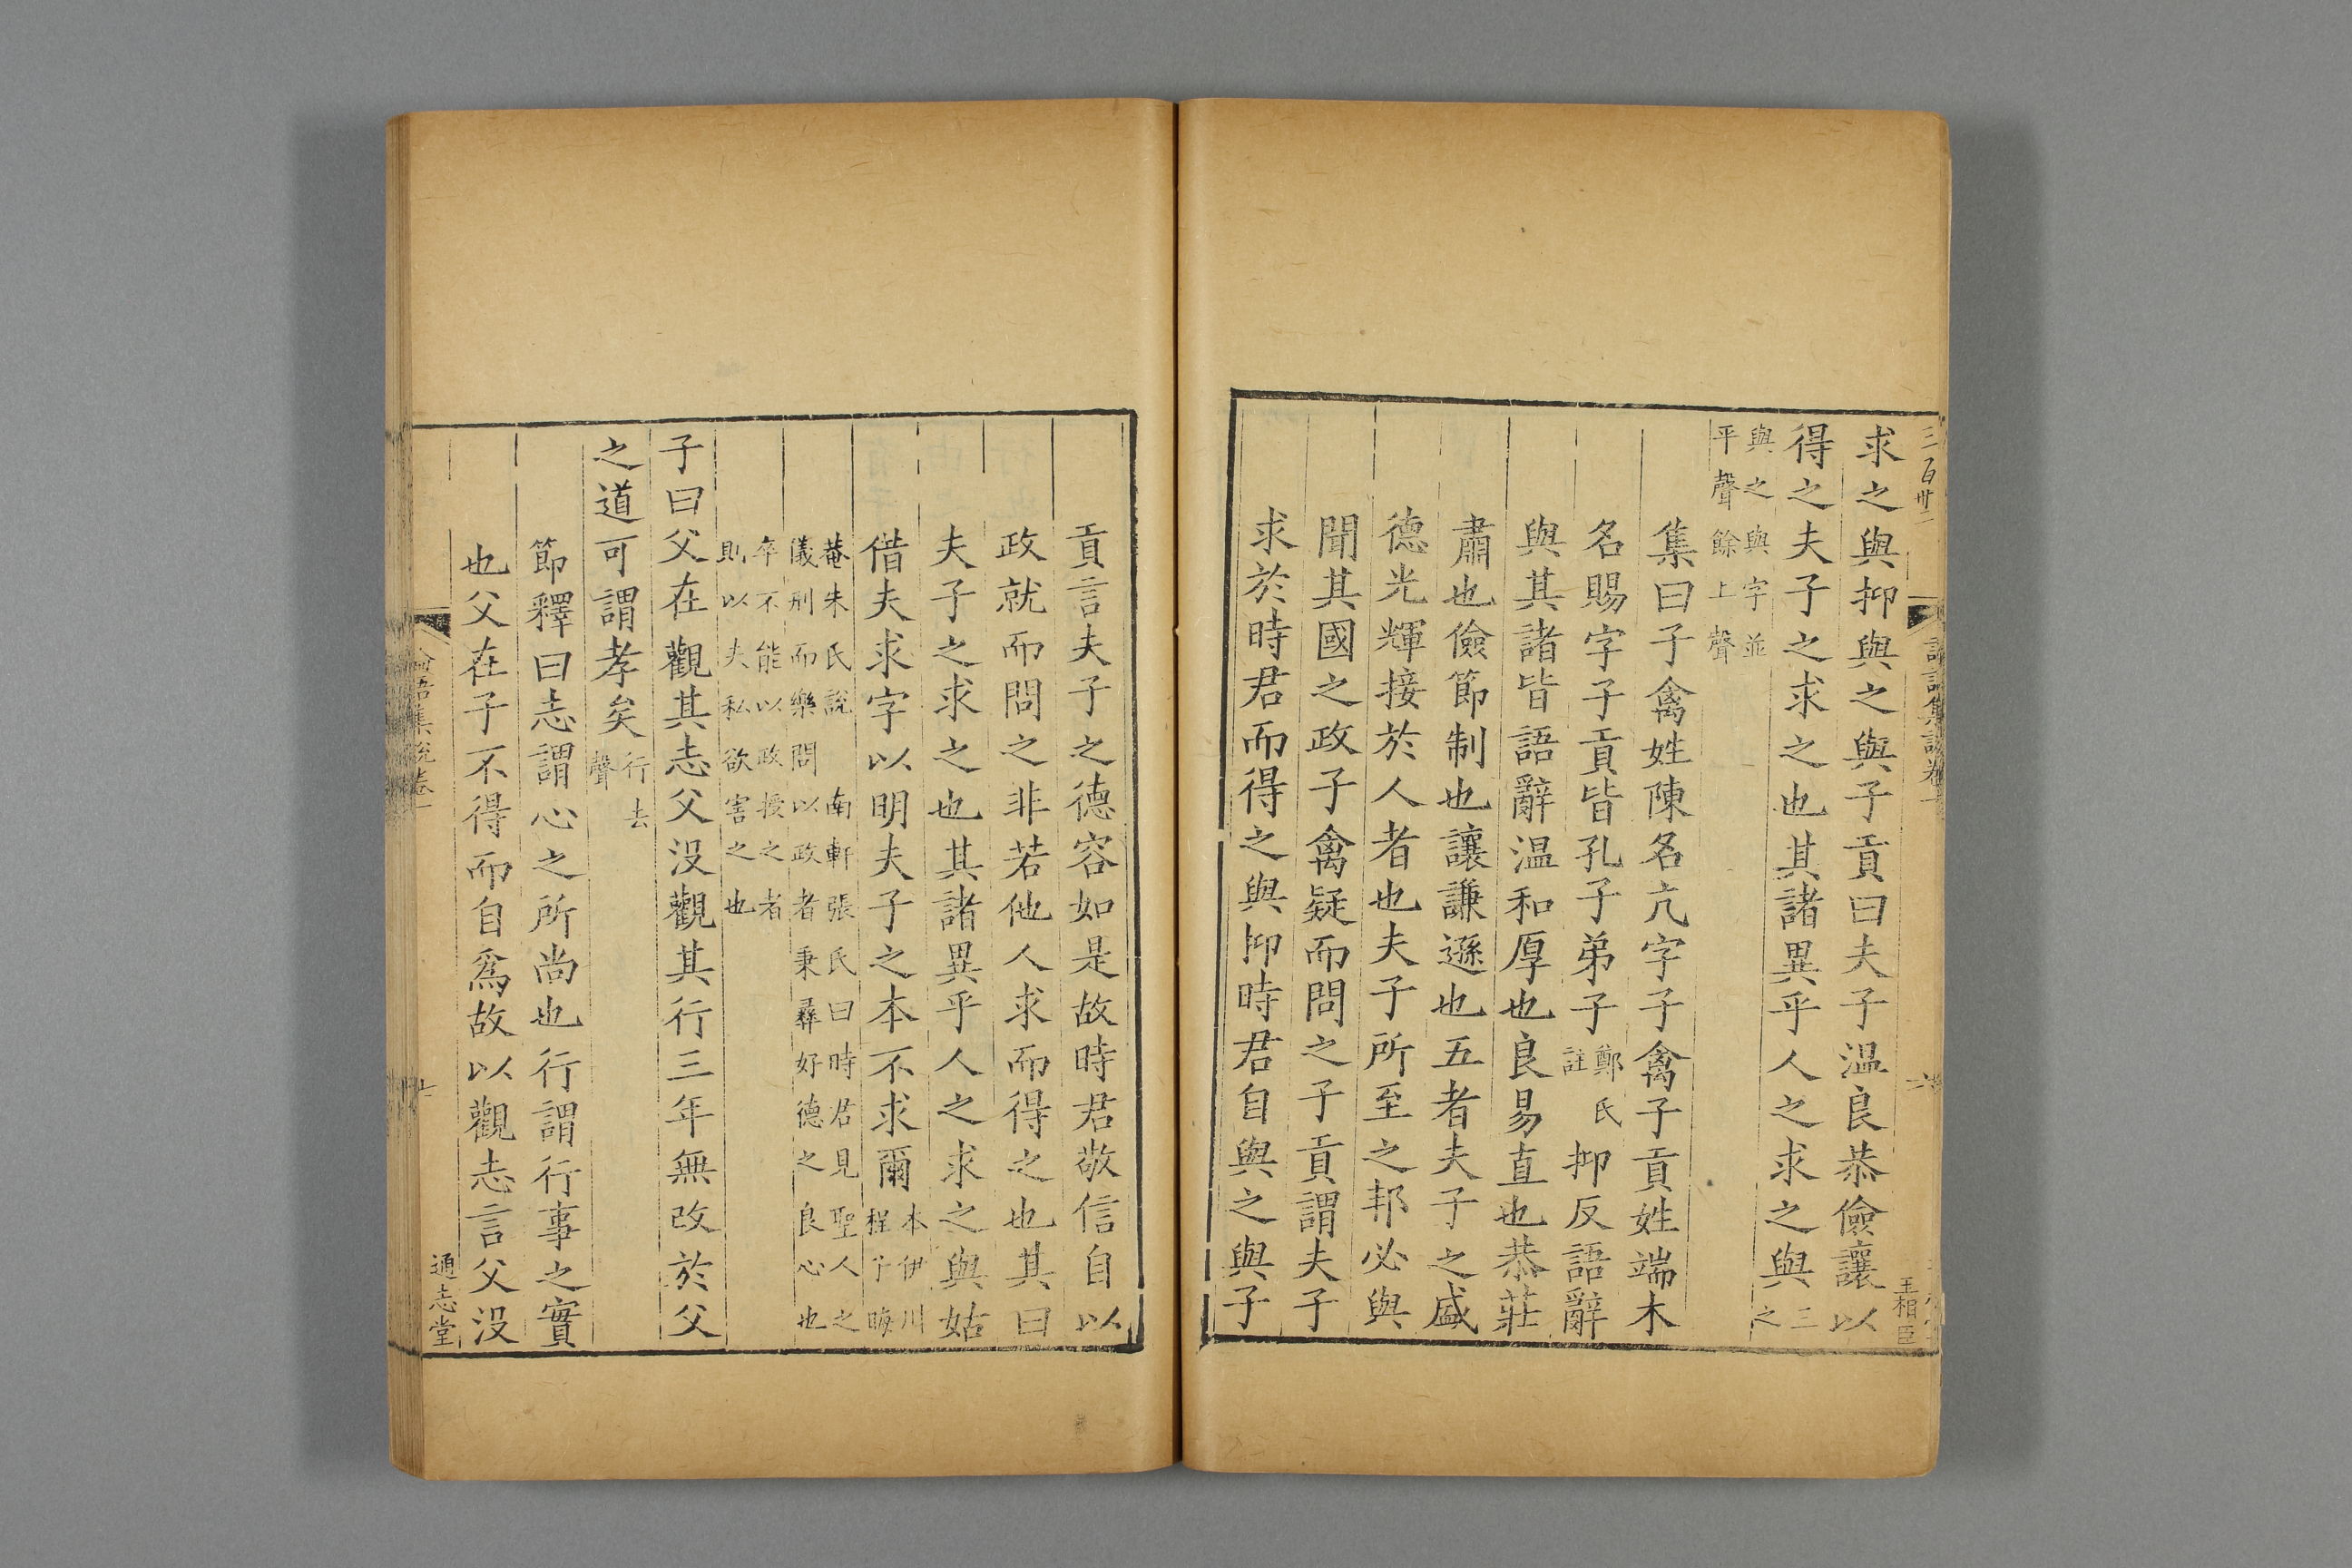 三百卅二
求之與抑與之與子貢曰夫子溫良恭儉讓以
得之夫子之求之也其諸異乎人之求之與三之
與之與字並
平聲餘上聲
集曰子禽姓陳名亢字子禽子貢姓端木
名賜字子貢皆孔子弟子鄭氏註抑反語辭
與其諸皆語辭溫和厚也良易直也恭莊
肅也儉節制也讓謙遜也五者夫子之盛
德光輝接於人者也夫子所至之邦必與
聞其國之政子禽疑而問之子貢謂夫子
求於時君而得之與抑時君自與之與子
王相臣
貢言夫子之德容如是故時君敬信自以
政就而問之非若他人求而得之也其曰
夫子之求之也其諸異乎人之求之與姑
借夫求字以明夫子之本不求爾本伊川程子晦
菴朱氏說 南軒張氏曰時君見聖人之
儀刑而樂問以政者秉彞好德之良心也
卒不能以政授之者
則以夫私欲害之也
子曰父在觀其志父沒觀其行三年無改於父
之道可謂孝矣行去聲
節釋曰志謂心之所尚也行謂行事之實
也父在子不得而自爲故以觀志言父沒
論語集說卷一
通志堂